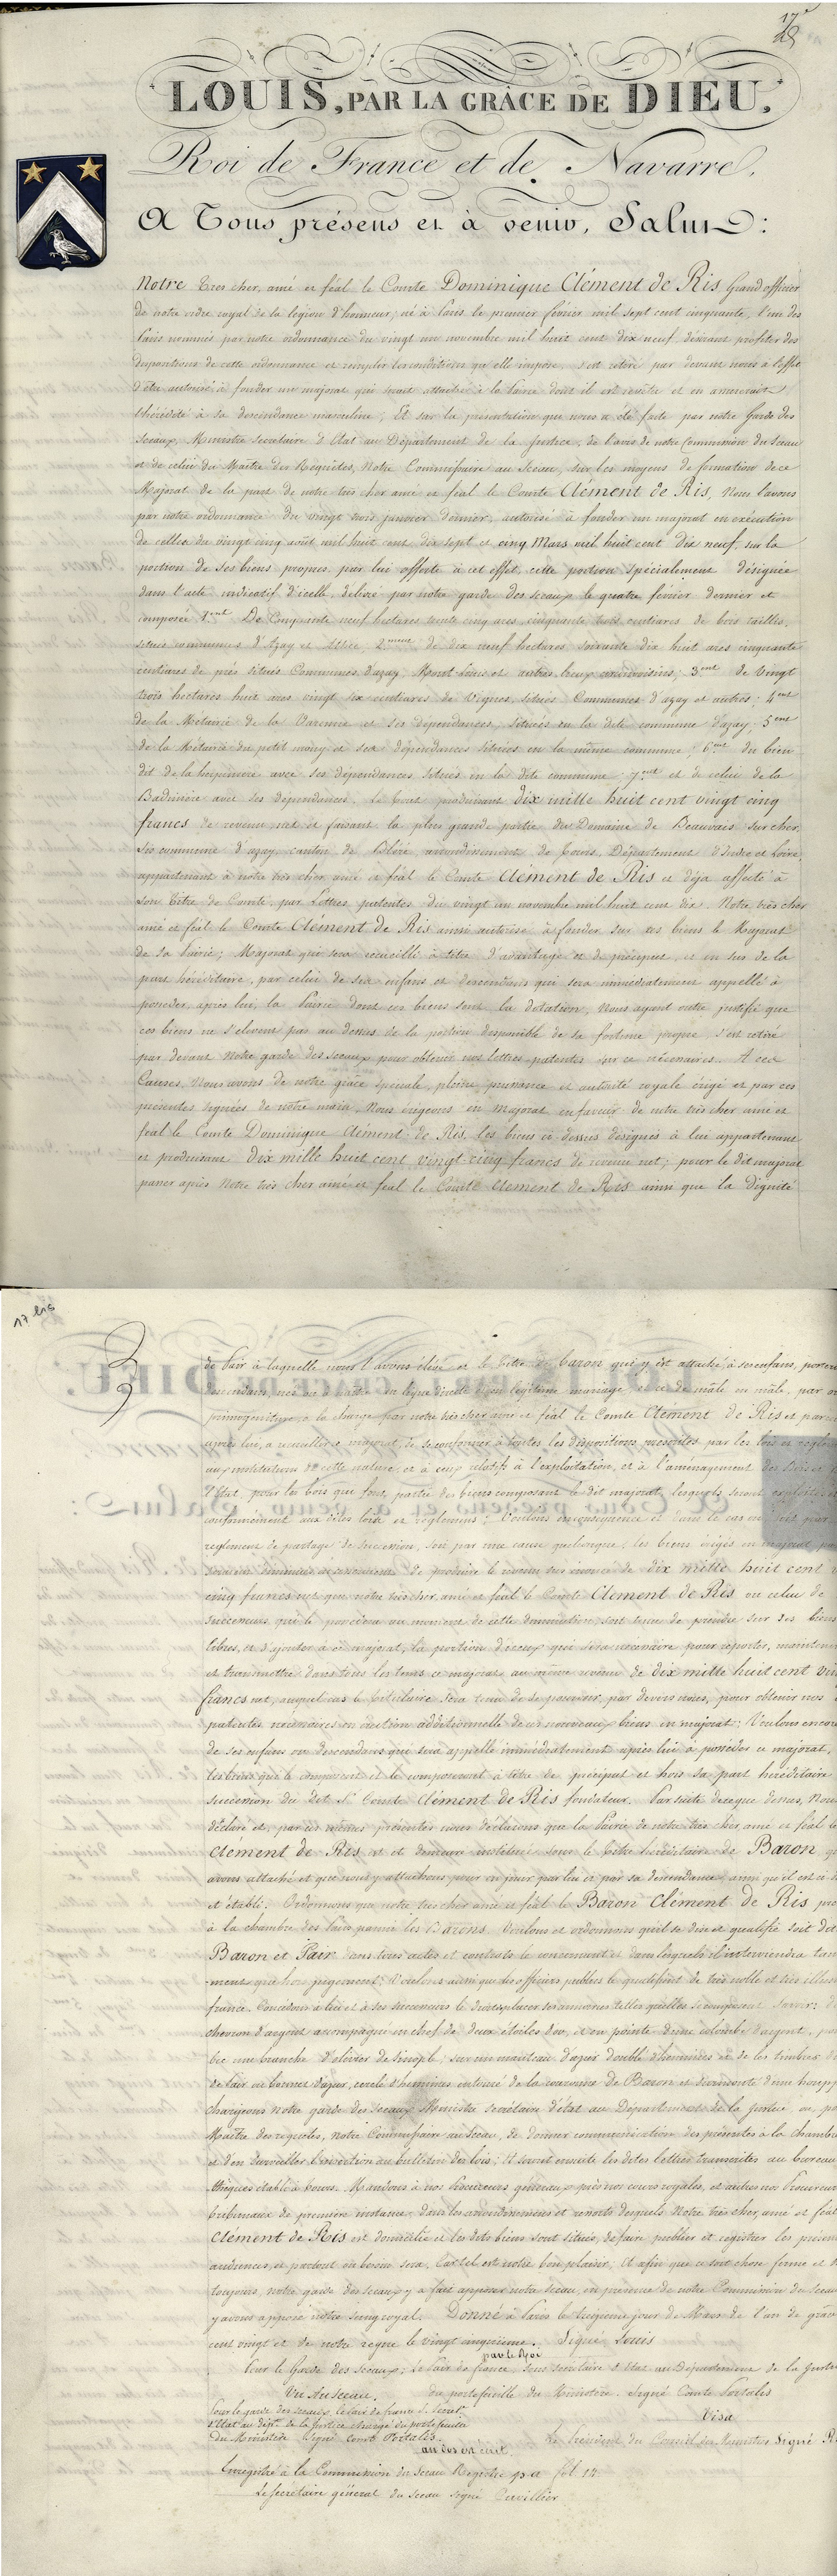 17
LOUIS, PAR LA GRÂCE DE DIEU,
Roi de France et de Navarre,
A Tous présens et à venir, Salut:
Notre tres cher, amé et féal le Comte Dominique Clément de Ris, Grand officier
de notre ordre royal de la légion d'honneur, né à Paris le premier février mil sept cent cinquante, l'un des
Pairs nommés par notre ordonnance du vingt un novembre mil huit cent dix neuf, désirant profiter des
dispositions de cette ordonnance et remplir les conditions qu'elle impose, s'est retiré par devant nous à l'effet
d'être autorisé à fonder un majorat qui serait attaché à la Pairie dont il est revêtu et en assurerait
l'hérédité à sa descendance masculine; Et sur la présentation que nous a été faite par notre Garde des
Sceaux, Ministre Secrétaire d'Etat au Département de la Justice, de l'avis de notre Commission du Sceau
et de celui du Maître des Requêtes, Notre Commissaire au Sceau, sur les moyens de formation de ce
Majorat de la part de notre très cher amé et féal le Comte Clément de Ris, Nous l'avons
par notre ordonnance du vingt trois janvier dernier, autorisé à fonder un majorat en exécution
de celles du vingt cinq août mil huit cent dix sept et cinq Mars mil huit cent dix neuf, sur la
portion de ses biens propres par lui offerte à cet effet, cette portion spécialement désignée
dans l'acte indicatif d'icelle, délivré par notre garde des Sceaux le quatre février dernier et
composée 1.ent De Cinquante neuf hectares trente cinq ares cinquante trois centiares de bois taillis,
situés communes d'Azay et Athée 2.ment de dix neuf hectares soixante dix huit ares cinquante
centiares de prés situés Communes d'azay, Mont Louis et autres lieux circonvoisins; 3.ent de Vingt
trois hectares huit ares vingt six centiares de Vignes, situées Communes d'azay et autres; 4.ent
de la Métairie de la Varenne et ses dépendances, situées en la dite commune d'azay; 5.ent
de la Métairie du petit noiry et ses dépendances situées en la même commune; 6.ent du bien
dit de la avec ses dépendances situés en la dite commune; 7.ent et de celui de la
Badinière avec ses dépendances. Le tout produisant dix mille huit cent vingt cinq
francs de revenu net et faisant la plus grande partie du Domaine de Beauvais sur cher,
sis commune d'azay, canton de Bléré, arrondissement de Tours, Département d'Indre et Loire,
appartenant à notre très cher, amé et féal le Comte Clément de Ris et déja affecté à
son Titre de Comte, par Lettres patentes du vingt un novembre mil huit cent dix. Notre très cher
amé et féal le Comte Clément de Ris ainsi autorisé à fonder sur ces biens le Majorat
de sa Pairie; Majorat qui sera recueilli à titre d'avantage et de préciput, et en sus de la
part héréditaire, par celui de ses enfans et descendans qui sera immédiatement appellé à
posseder, après lui, la Pairie dont ces biens sont la dotation, Nous ayant outre justifié que
ces biens ne s'elevent pas au dessus de la portion disponible de sa fortune propre, s'est retiré
par devant notre garde des sceaux pour obtenir nos lettres-patentes sur ce nécessaires. A ces
Causes, Nous avons de notre grâce spéciale, pleine puissance et autorité royale érigé et par ces
présentes signées de notre main, Nous érigeons en Majorat en faveur de notre très cher amé et
féal le Comte Dominique Clément de Ris, les biens ci-dessus désignés à lui appartenant
et produisant dix mille huit cent vingt cinq francs de revenu net; pour le dit majorat
passer après notre très cher amé et féal le Comte Clément de Ris ainsi que la dignité
17 bis
de Pair à laquelle nous l'avons élévé et le titre de baron qui y est attaché, à ses enfans,
descendans, nés ou à naître en ligne directe et en légitime mariage, et ce de mâle en mâle, par
primogéniture, à la charge par notre très cher amé et féal le Comte Clément de Ris et par
après lui, à recueillir ce majorat, de se conformer à toutes les dispositions prescrites par les lois et
aux institutions de cette nature, et à ceux relatifs à l'exploitation, et à l'aménagement des Bois
l'Etat, pour les bois que font partie des biens composant le dit majorat, lesquels seront exploités
conformément aux dites lois et réglemens: Voulons en conséquence et dans le cas où soit par
reglement de partage de succession, soit par une cause quelconque, les biens érigés en majorat,
de produire le revenu sus énoncé de dix mille huit cent
cinq francs net, que notre très cher, amé et féal le Comte Clément de Ris ou celui de
successeurs, qui le possédera au moment de cette diminution soit tenu de prendre sur ses biens
libres, et d'ajouter à ce majorat, la portion d'iceux qui sera nécessaire pour reporter, maintenir
et transmettre dans tous les tems ce majorat au même revenu de dix mille huit cent
francs net, auquel cas le titulaire sera tenu de se pourvoir, par devers nous, pour obtenir nos
patentes nécessaires en érection additionnelle de ces nouveaux biens en majorat: Voulons encore
de ses enfans ou descendans qui sera appellé immédiatement après lui à posséder ce majorat,
les biens qui le composent et le composeront à titre de préciput et hors sa part héréditaire
succession du dit S.r Comte Clément de Ris fondateur. Par suite de ce que dessus, Nous
déclaré et, par ces mêmes présentes nous déclarons que la Pairie de notre très cher, amé et féal le
Clément de Ris est et demeure instituée sous le titre héréditaire de Baron
avons attaché et que nous y attachons pour en jouir par lui et par sa descendance, ainsi qu'il est ci
et établi. Ordonnons que notre très cher amé et féal le Baron Clément de Ris
à la chambre des Pairs parmi les Barons. Voulons et ordonnons qu'il se dise et qualifie soit dit
Baron et Pair dans tous actes et contrats le concernant et dans lesquels il interviendra tant
ment que hors jugement; Voulons aussi que les officiers publics le qualifient de très noble et très
france. Concédons à lui et à ses successeurs le droit de placer ses armoiries telles quelles se composent savoir:
chevron d'argent accompagné en chef de deux étoiles d'or, et en pointe d'une colombe d'argent,
bec une branche d'olivier de sinople; sur un manteau d'azur doublé d'hermines et de les timbrer
de Pair ou bonnet d'azur, cerclé d'hermines entouré de la couronne de Baron et surmonté d'une
chargeons notre garde des sceaux Ministre secrétaire d'état au Département de la Justice ou,
Maître des requêtes, notre Commissaire au Sceau, de donner communication des présentes à la chambre
et d'en surveiller l'insertion au bulletin des lois; Et seront ensuite les dites lettres transcrites au bureau
thèques établi à tours. Mandons à nos Procureurs généraux près nos cours royales, et autres nos Procureurs
tribunaux de première instance dans les arrondissemens et ressorts desquels Notre très cher, amé et féal
Clément de Ris est domicilié et les dits biens sont situés, de faire publier et registrer les
audiences, et partout où besoin sera. Car tel est notre bon plaisir, Et afin que ce soit chose ferme et
toujours, notre garde des sceaux y a fait apposer notre sceau, en présence de notre Commission du sceau
y avons apposé notre seing royal. Donné à Paris le treizième jour de Mars de l'an de grâce
cent vingt et de notre règne le vingt cinquième. Signé Louis
par le Roi
Pour le Garde des Sceaux; Le Pair de france, Sous secrétaire d'Etat au Département de la
Vu au Sceau. du portefeuille du Ministère. Signé Comte Portalis
Pour le garde des Sceaux, le Pair de france S. Secret.re Visa
d'Etat au dép.t de la Justice chargé du portefeuille
du Ministère Signé Comte Portalis. Le Président du Conseil des Ministres Signé
au dos est écrit:
Enregistré à la Commission du Sceau Registre fol. 14
Le secrétaire général du sceau signé Cuvillier